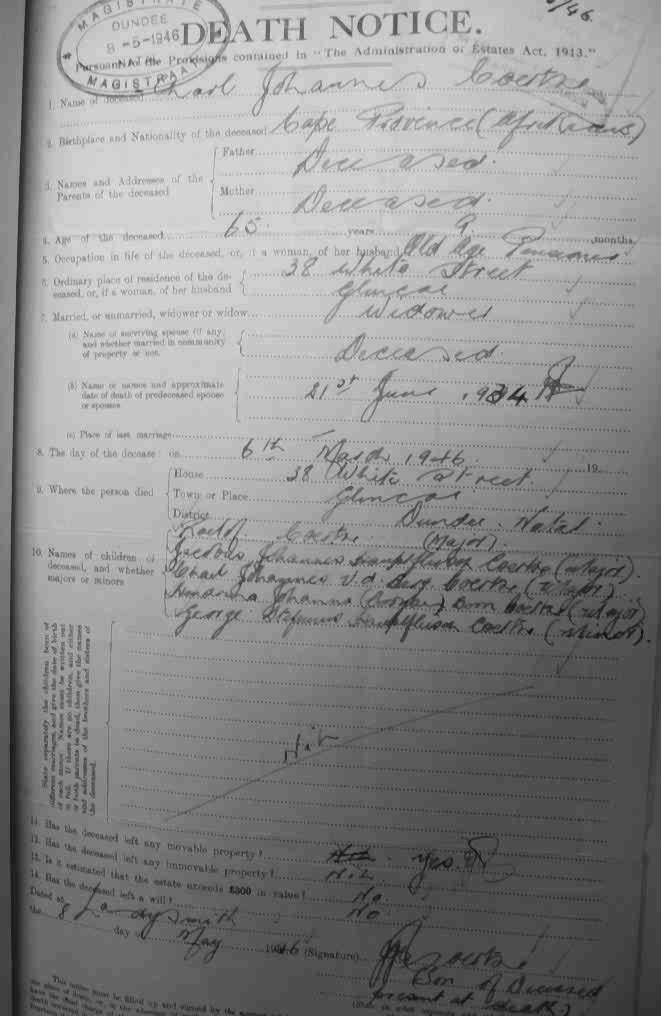 MAGISTRATE
DUNDEE
8-5-1946
NATAL
MAGISTRAAT
/46.
DEATH NOTICE.
Pursuant to the Provisions contained in "The Administration of Estates Act, 1913."
1. Name of deceased Charl Johannes Coertze
2. Birthplace and Nationality of the deceased Cape Province (Afrikaans)
3. Names and Addresses of the Parents of the deceased
Father Deceased.
Mother Deceased.
4. Age of the deceased 65 years 9 months
5. Occupation in life of the deceased, or, if a woman, of her husband Old Age Pensioner
6. Ordinary place of residence of the deceased, or, if a woman, of her husband 38 White Street
Glencoe
7. Married, or unmarried, widower or widow Widower
(a) Name of surviving spouse (if any) and whether married in community of property or not. Deceased
(b) Name or names and approximate date of death of predeceased spouse or spouses 21st June 1934
(c) Place of last marriage —
8. The day of the decease: on 6th March 1946. 19
9. Where the person died
House 38 White Street.
Town or Place Glencoe
District Dundee. Natal.
10. Names of children of deceased, and whether majors or minors
Roelof Coertze (Major).
Johannes Coertze (Major).
Charl Johannes V.d. Berg Coertze (Major)
Johanna Born Coertze (Major)
George Stefanus Coertze (Minor).
State separately the children born of different marriages, and give the date of birth of each minor. Names must be written out in full. If there are no children, and either or both parents be dead, then give the names and addresses of the brothers and sisters of the deceased.
Nil
11. Has the deceased left any movable property? Nil. Yes.
12. Has the deceased left any immovable property? Nil
13. Is it estimated that the estate exceeds £300 in value? No
14. Has the deceased left a will? No.
Dated at Ladysmith
the 8 day of May 1946 (Signature) Coertze
Son of Deceased
present at death)
This notice must be filled up and signed by the